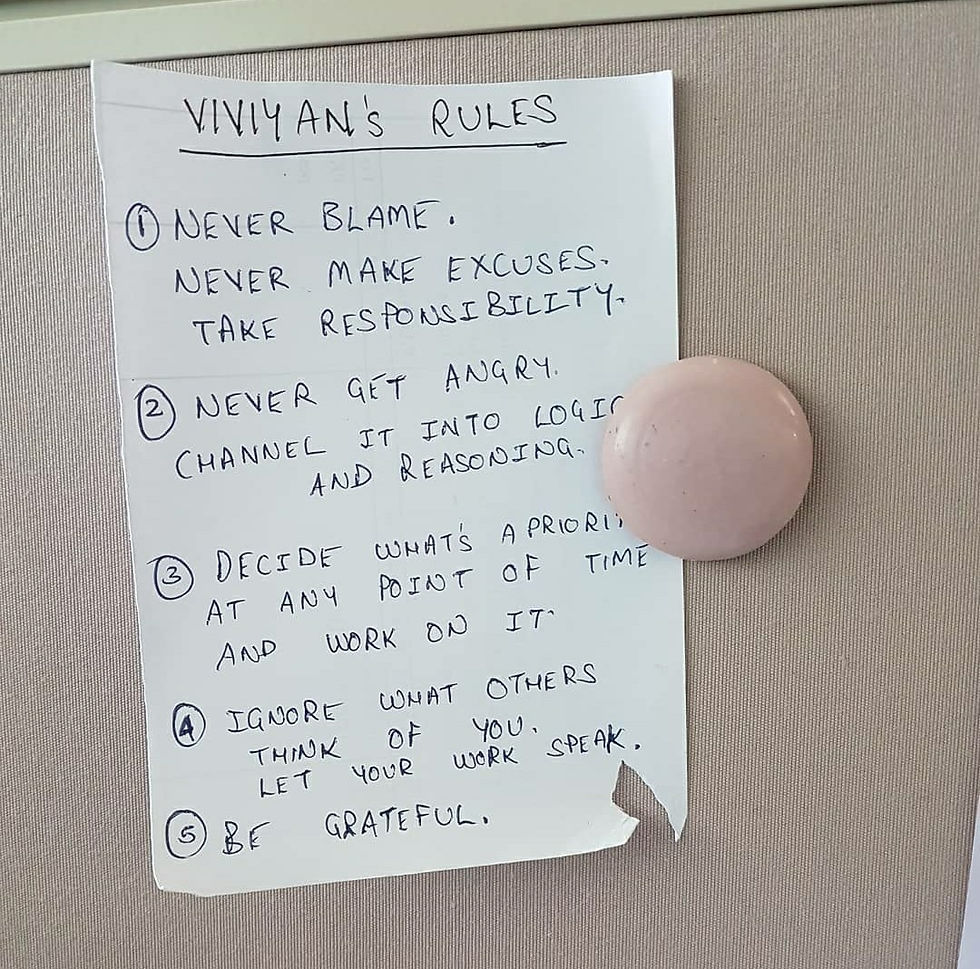 VIVIYAN'S RULES
① NEVER BLAME.
NEVER MAKE EXCUSES.
TAKE RESPONSIBILITY.
② NEVER GET ANGRY.
CHANNEL IT INTO LOGIC
AND REASONING.
③ DECIDE WHAT'S A PRIORI
AT ANY POINT OF TIME
AND WORK ON IT.
④ IGNORE WHAT OTHERS
THINK OF YOU.
LET YOUR WORK SPEAK.
⑤ BE GRATEFUL.